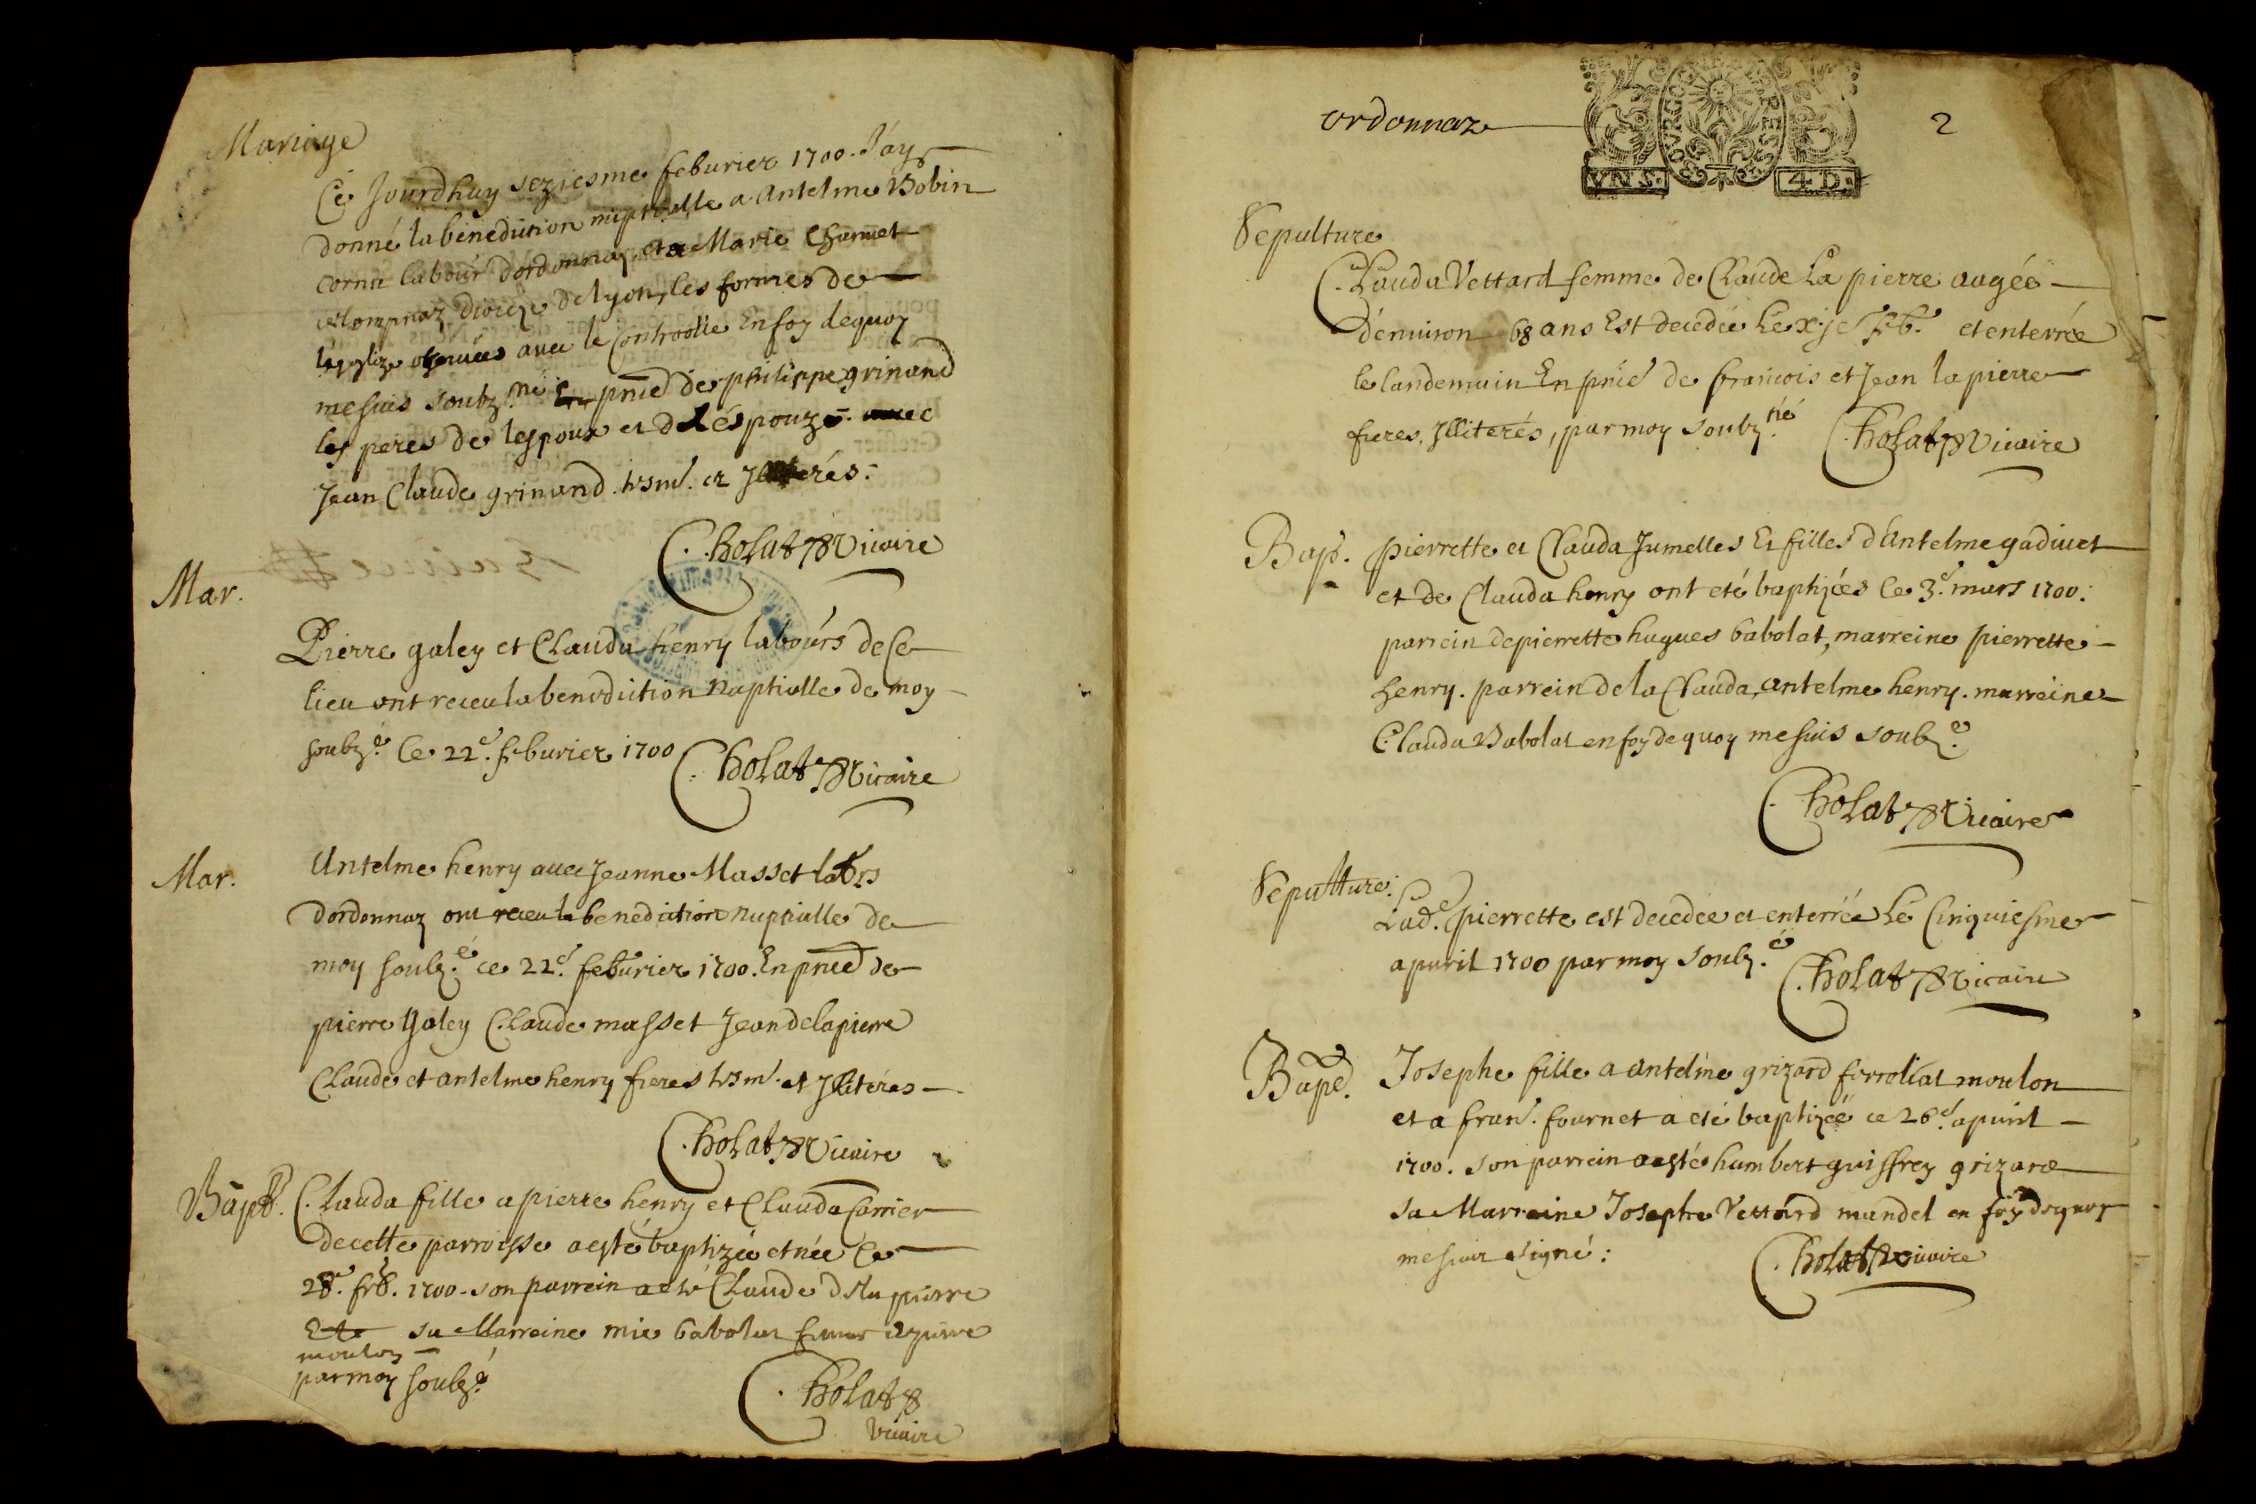 Mariage
Ce Jourdhuy seziesme feburier 1700. Jay
donné la benediction nuptialle a Antelme Bobin
cornu labour dordonnaz et a Marie Charmet
dioceze de lyon, les formes de
legglize obseruées auec le Controolle En foy dequoy
me suis soubz.né En pnce de philippe grinand
les peres de lespoux et de léspouze. auec
Jean Claude grinand. tesm. et Jlliterés.
Cholat Vicaire
Mar.
Pierre galey et Clauda henry labours de Ce
lieu ont receu la benediction Nuptialle de moy
soubz.é Ce 22e. feburier 1700
Cholat Vicaire
Mar.
Antelme henry auec Jeanne Masset labrs
dordonnaz ont receu la benediction nuptialle de
moy soubz.é ce 22e. feburier 1700. En pnce de
pierre galey Claude masset Jean delapierre
Claude et antelme henry freres tesm. et Jlliterés
Cholat Vicaire
Bapt.
Clauda fille a pierre henry et Clauda Carrier
de cette parroisse a esté baptizée et née Ce
28e. feb. 1700. son parrein a esté Claude delapierre
Et sa Marreine mie babolat femme a pierre
moulon
par moy soubz.é
Cholat
Vicaire
ordonnaz
2
BOURGOGNE BRESSE
VN S.
4 D.
Sepulture
Clauda Vettard femme de Claude La pierre augée
d'enuiron 68 ans Est decedée Le xje feb. et enterrée
le landemain En pnce de francois et Jean la pierre
freres. Jlliterés, par moy soubz.né
Cholat Vicaire
Bap.
pierrette et Clauda Jumelles Et filles d'Antelme gadiuet
et de Clauda henry ont eté baptizées Ce 3e. mars 1700.
parrein de pierrette hugues babolat, marreine pierrette
henry. parrein de la Clauda, antelme henry. marreine
Clauda Babolat en foy de quoy me suis soubz.é
Cholat Vicaire
Sepulture.
Lad.e pierrette est decedée et enterrée Le Cinquiesme
apuril 1700 par moy Soubz.é
Cholat Vicaire
Bapt.
Josephe fille a Antelme grizard ferroliat moulon
et a fran. fournet a eté baptizée ce 26e. apuril
1700. son parrein a esté humbert guiffrey grizard
sa Marreine Josephe Vettard mandel en foy dequoy
me suis signé:
Cholat Vicaire